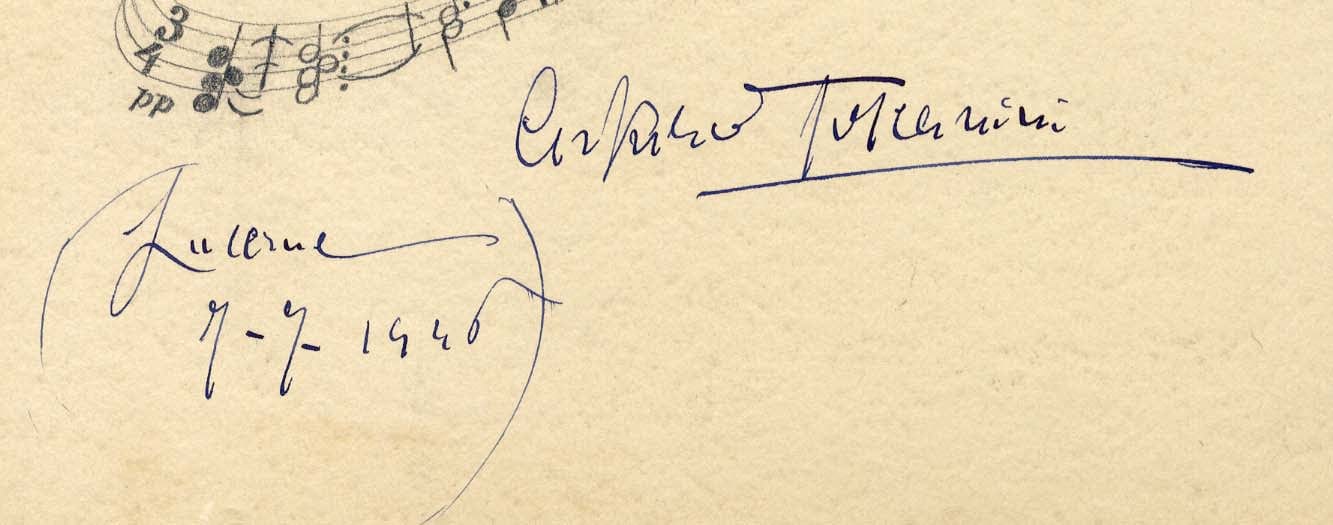 3
4
pp
Arturo Toscanini
Lucerne
7-7-1946